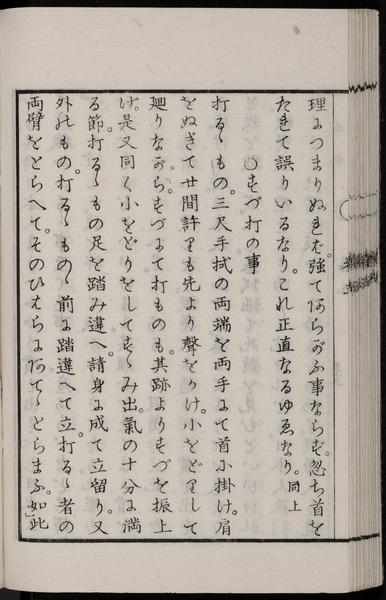 理につまりぬれば。強てあらがふ事ならず。忽ち首を
たれて誤りいるなり。これ正直なるゆゑなり。同上
○むづ打の事
打るゝもの。三尺手拭の両端を両手にて首に掛け。肩
をぬぎて廿間許りも先より聲をかけ。小をどりして
廻りながら。むづにて打ものも。其跡よりむづを振上
げ。是又同く小をどりをしてすゝみ出。氣の十分に満
る節。打るゝもの足を踏み違へ。請身に成て立留り。又
外のもの。打るゝものゝ前に踏違へて立。打るゝ者の
両臂をとらへて。そのひぢらにあてゝとらまふ。如此